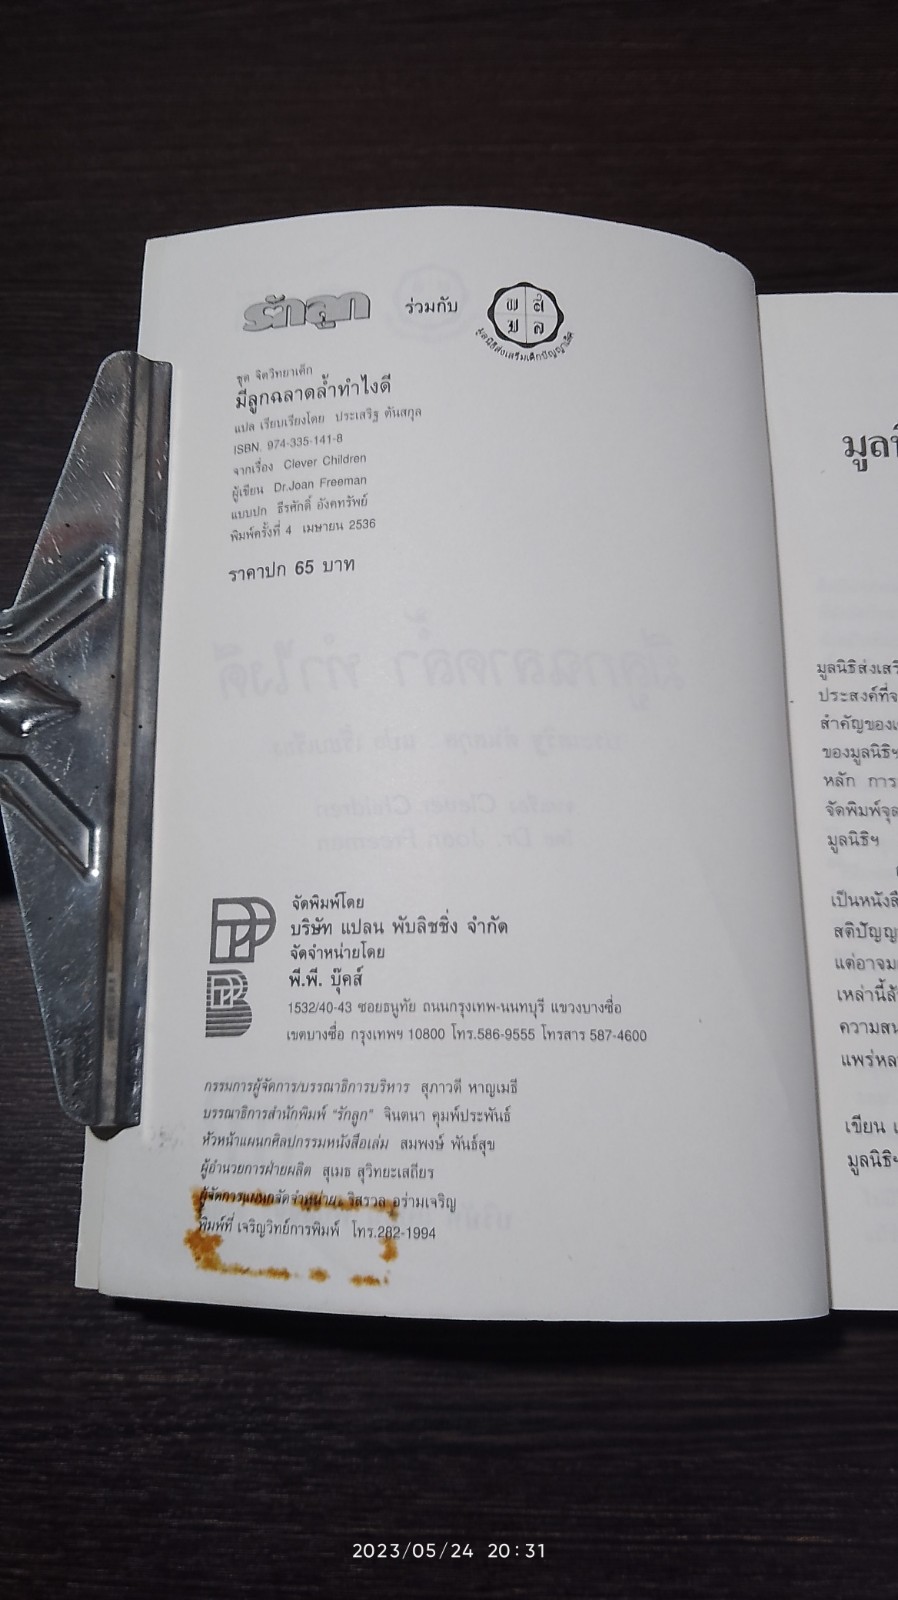 รักลูก ร่วมกับ ผ ส ม ล
มูลนิธิส่งเสริมเด็กปัญญาเลิศ
ชุด จิตวิทยาเด็ก
มีลูกฉลาดล้ำทำไงดี
แปล เรียบเรียงโดย ประเสริฐ ตันสกุล
ISBN. 974-335-141-8
จากเรื่อง Clever Children
ผู้เขียน Dr.Joan Freeman
แบบปก ธีรศักดิ์ อังคทรัพย์
พิมพ์ครั้งที่ 4 เมษายน 2536
ราคาปก 65 บาท
จัดพิมพ์โดย
บริษัท แปลน พับลิชชิ่ง จำกัด
จัดจำหน่ายโดย
พี.พี. บุ๊คส์
1532/40-43 ซอยธนูทัย ถนนกรุงเทพ-นนทบุรี แขวงบางซื่อ
เขตบางซื่อ กรุงเทพฯ 10800 โทร.586-9555 โทรสาร 587-4600
กรรมการผู้จัดการ/บรรณาธิการบริหาร สุภาวดี หาญเมธี
บรรณาธิการสำนักพิมพ์ "รักลูก" จินตนา คุมพ์ประพันธ์
หัวหน้าแผนกศิลปกรรมหนังสือเล่ม สมพงษ์ พันธ์สุข
ผู้อำนวยการฝ่ายผลิต สุเมธ สุวิทยะเสถียร
ผู้จัดการแผนกจัดจำหน่าย อร่ามเจริญ
พิมพ์ที่ เจริญวิทย์การพิมพ์ โทร.282-1994
มูลนิธิส่งเส
ประสงค์ที่จ
สำคัญของ
ของมูลนิธิฯ
หลัก การ
จัดพิมพ์จุล
มูลนิธิฯ
เป็นหนังสื
สติปัญญ
แต่อาจม
เหล่านี้
ความสน
แพร่หล
เขียน
มูลนิธิ
2023/05/24 20:31